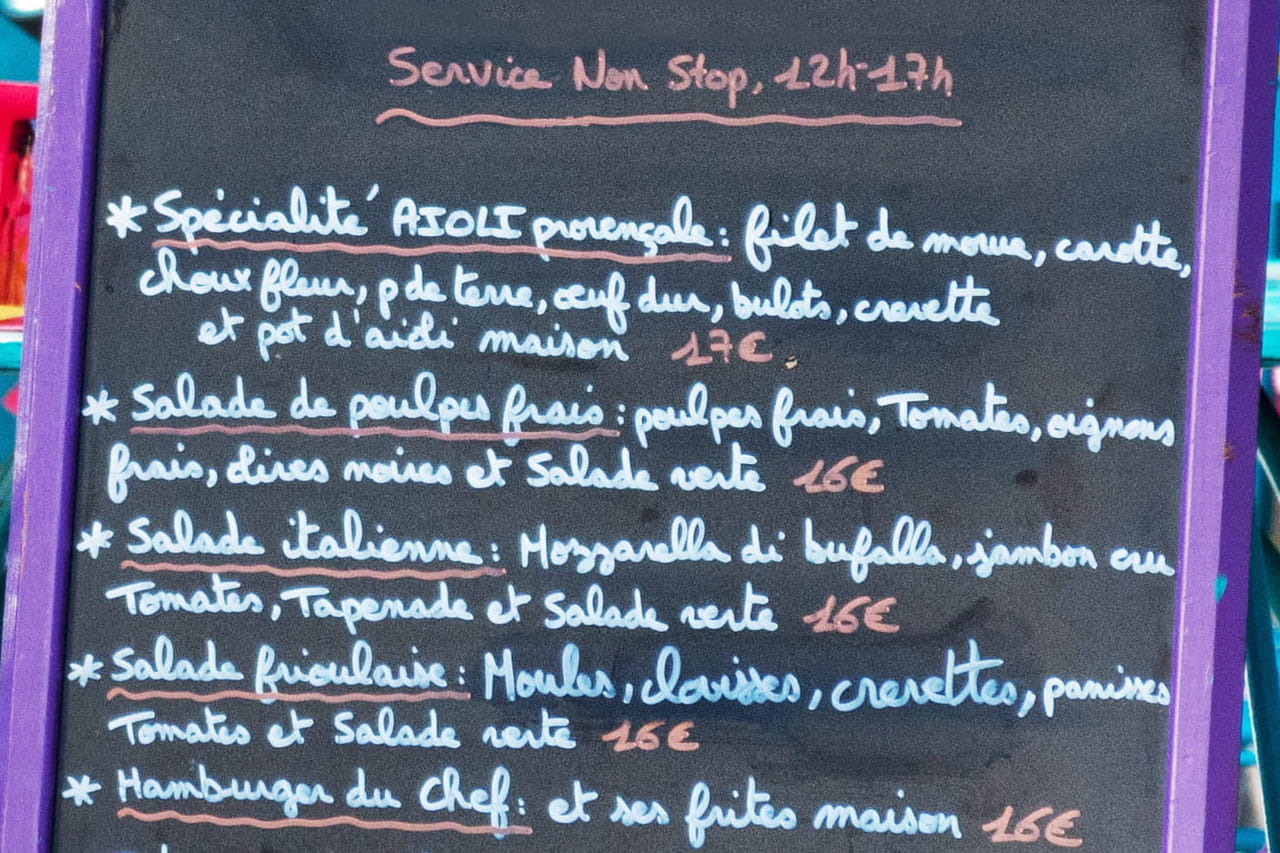 Service Non Stop, 12h-17h
* Spécialité AIOLI provençale : filet de morue, carotte,
choux fleur, p de terre, œuf dur, bulots, crevette
et pot d'aioli maison 17€
* Salade de poulpes frais : poulpes frais, Tomates, oignons
frais, olives noires et Salade verte 16€
* Salade italienne : Mozzarella di bufalla, jambon cru
Tomates, Tapenade et Salade verte 16€
* Salade frioulaise : Moules, clovisses, crevettes, panisses
Tomates et Salade verte 16€
* Hamburger du Chef : et ses frites maison 16€